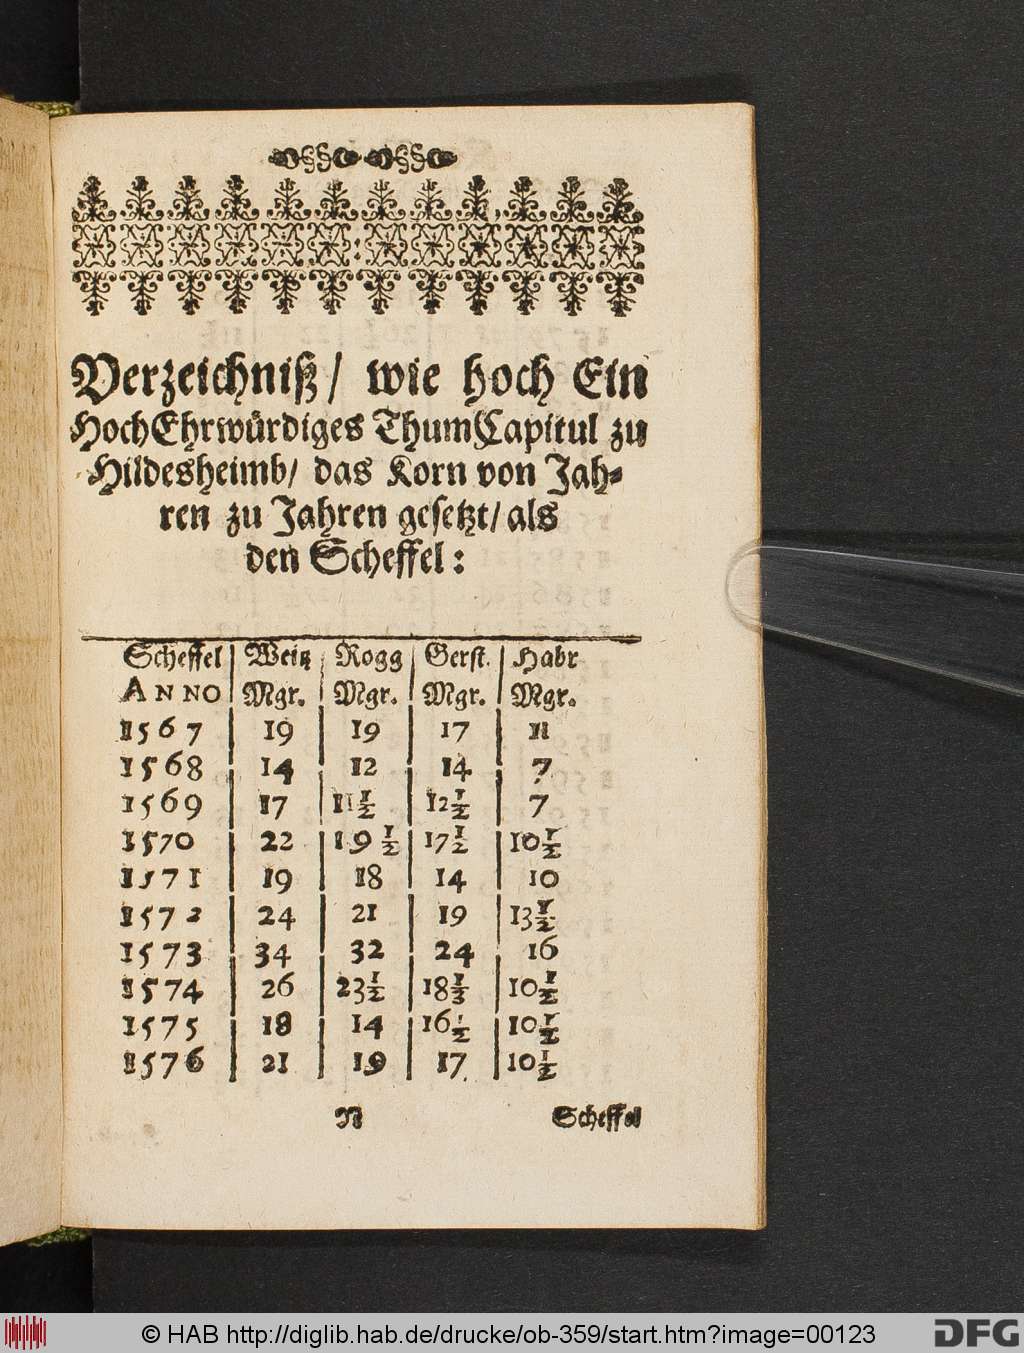 Verzeichniß/ wie hoch Ein
HochEhrwürdiges ThumCapitul zu
Hildesheimb/ das Korn von Jah-
ren zu Jahren gesetzt/ als
den Scheffel:
Scheffel Weitz Rogg Gerst. Habr
ANNO Mgr. Mgr. Mgr. Mgr.
1567 19 19 17 11
1568 14 12 14 7
1569 17 11½ 12½ 7
1570 22 19½ 17½ 10½
1571 19 18 14 10
1572 24 21 19 13½
1573 34 32 24 16
1574 26 23½ 18⅓ 10½
1575 18 14 16½ 10½
1576 21 19 17 10½
N Scheffel
© HAB http://diglib.hab.de/drucke/ob-359/start.htm?image=00123
DFG